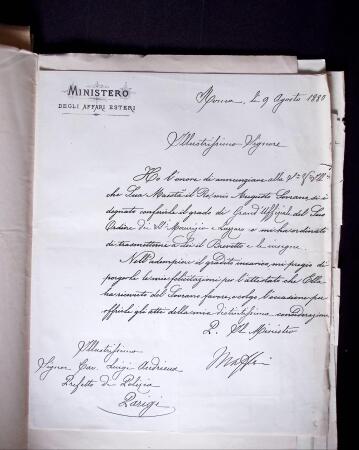 MINISTERO
DEGLI AFFARI ESTERI
Roma, li 9 Agosto 1880
Illustrissimo Signore
Ho l'onore di annunziare alla
che Sua Maestà il Re, mio Augusto Sovrano, si è
degnato conferirle il grado di Grand'Uffiziale del Suo
Ordine di Sti Maurizio e Lazzaro e mi ha ordinato
di trasmettere a Lei il Brevetto e le insegne.
Nell'adempiere il gradito incarico, mi pregio di
porgerle le mie felicitazioni per l'attestato che Ella
ha ricevuto del Sovrano favore, e colgo l'occasione per
offrirle gli atti della mia distintissima considerazione
P. Il Ministro
Maffei
Illustrissimo
Signor Cav. Luigi Andrieux
Prefetto di Polizia
Parigi